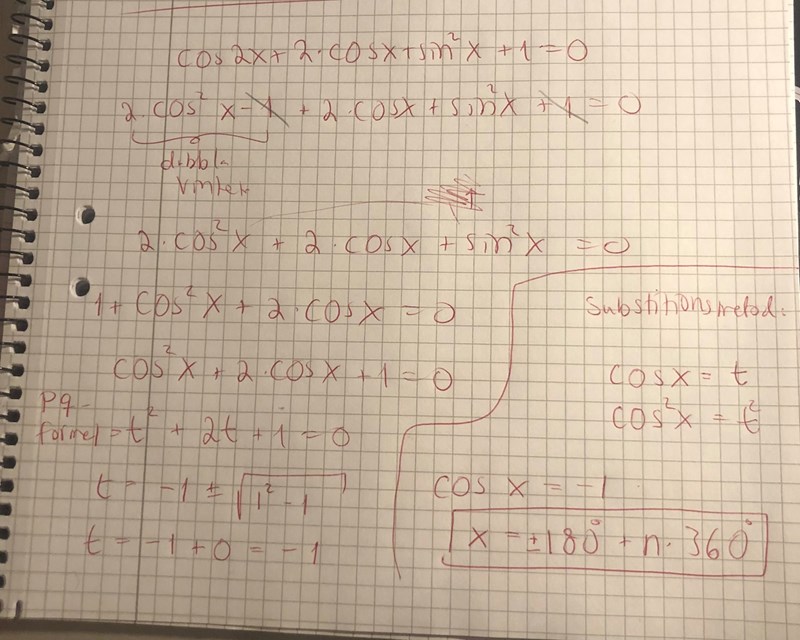 cos 2x + 2·cosx + sin²x + 1 = 0
2·cos²x - 1 + 2·cosx + sin²x + 1 = 0
dubbla
vinkeln
2·cos²x + 2·cosx + sin²x = 0
1 + cos²x + 2·cosx = 0
cos²x + 2·cosx + 1 = 0
pq-
formel = t² + 2t + 1 = 0
t = -1 ± √1² - 1
t = -1 + 0 = -1
Substitionsmetod:
cosx = t
cos²x = t²
cos x = -1
x = ±180° + n·360°